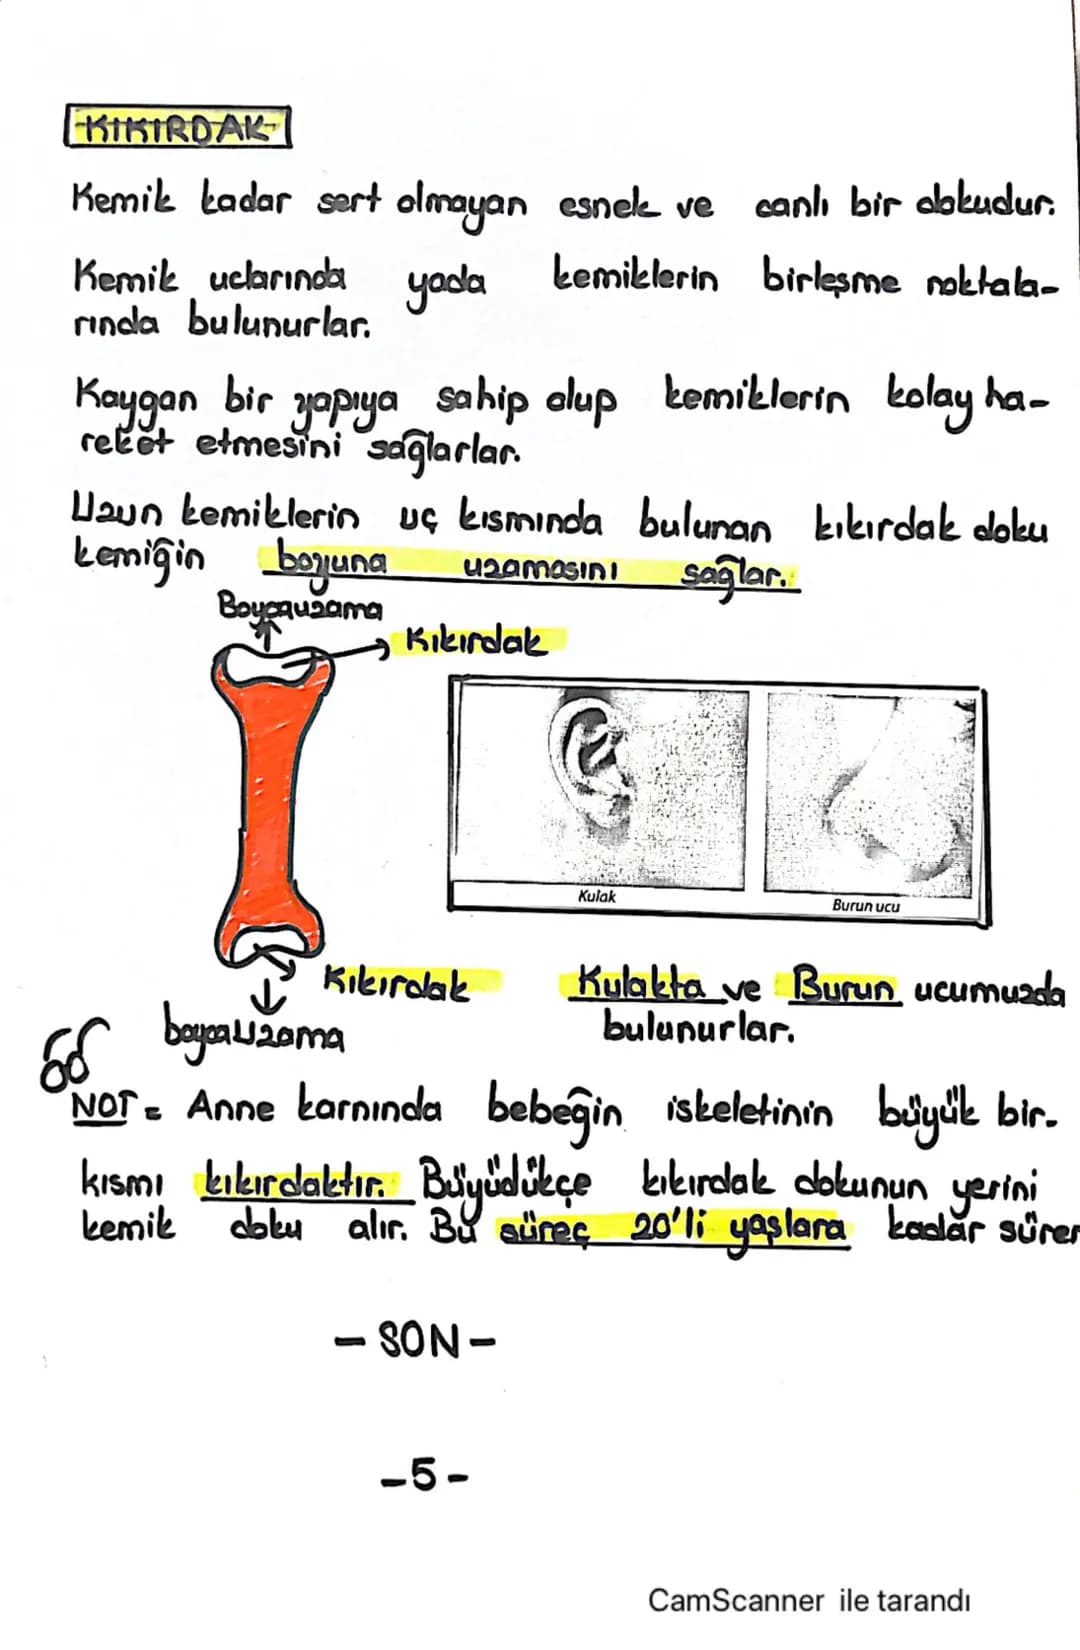 KIKIRDAK
Kemik kadar sert olmayan esnek ve canlı bir dokudur.
Kemik uclarında yada kemiklerin birleşme noktala-
rında bulunurlar.
Kaygan bir yapıya sahip olup kemiklerin kolay ha-
reket etmesini sağlarlar.
Uzun kemiklerin uç kısmında bulunan kıkırdak doku
kemiğin boyuna uzamasını sağlar.
Boyca uzama
Kıkırdak
Kulak
Burun ucu
Kıkırdak
boyca uzama
Kulakta ve Burun ucumuzda
bulunurlar.
NOT = Anne karnında bebeğin iskeletinin büyük bir-
kısmı kıkırdaktır. Büyüdükçe kıkırdak dokunun yerini
kemik doku alır. Bu süreç 20'li yaşlara kadar sürer
- SON -
- 5 -
CamScanner ile tarandı